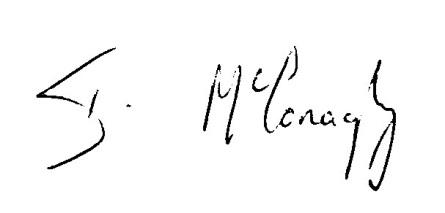 J. McConaghy